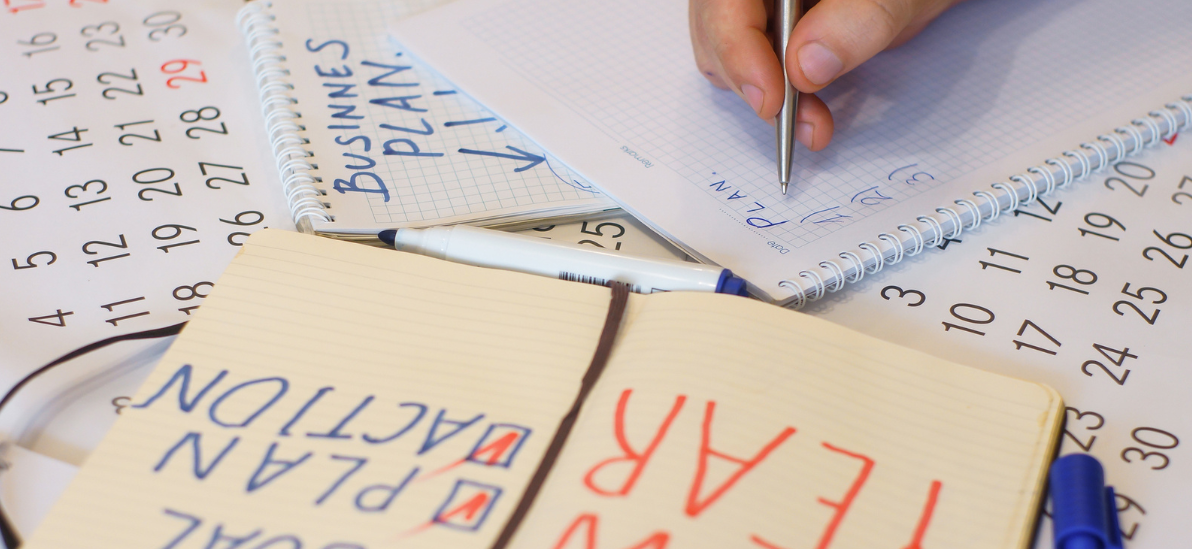 BUSINNES
PLAN.
PLAN.
1)
2)
3)
Remarks
Date
PLAN
ACTION
EAR
4 5 6 7
11 12 13 14 15 16
18 19 20 21 22 23
25 26 27 28 29 30
3
10 11 12
17 18 19 20
24 25 26 27
23
30
29